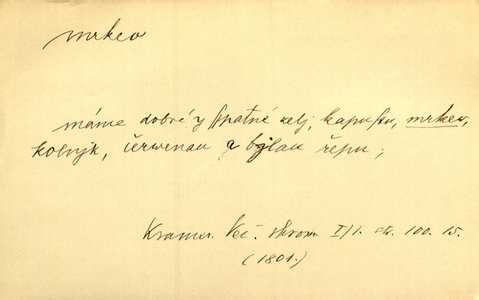 mrkev
máme dobré y sspatné zelj, kapustu, mrkev,
kolnyk, čerwenau a bjlau řepu;
Kramer. Več. shrom. I/1. str. 100. 15.
(1801.)